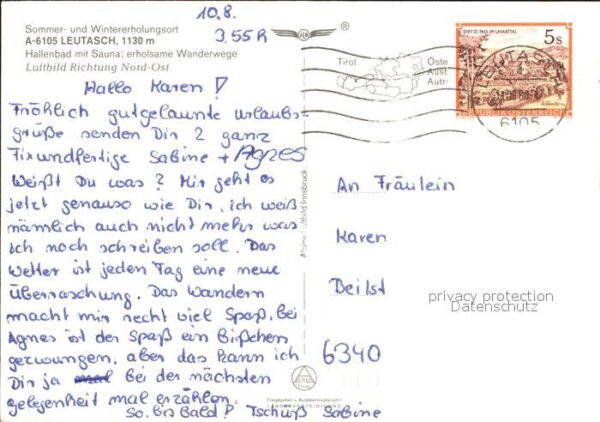 10.8.
3,55 R
Sommer- und Wintererholungsort
A-6105 LEUTASCH, 1130 m
Hallenbad mit Sauna; erholsame Wanderwege
Luftbild Richtung Nord-Ost
Hallo Karen!
Fröhlich gutgelaunte Urlaubs-
grüße senden Dir 2 ganz
Fixundfertige Sabine + Agnes
Weißt Du was? Mir geht es
jetzt genauso wie Dir, ich weiß
nämlich auch nicht mehr was
ich noch schreiben soll. Das
Wetter ist jeden Tag eine neue
Überraschung. Das Wandern
macht mir recht viel Spaß, bei
Agnes ist der Spaß ein bißchen
gezwungen, aber das kann ich
Dir ja mal bei der nächsten
gelegenheit mal erzählen.
So. bis Bald! Tschüß Sabine
Alpine Luftbild Innsbruck
Tirol
Öste
Aust
Autri
STIFT ST. PAUL IM LAVANTTAL
5 s
REPUBLIK ÖSTERREICH
6105
An Fräulein
Karen
Beilst
privacy protection
Datenschutz
6340